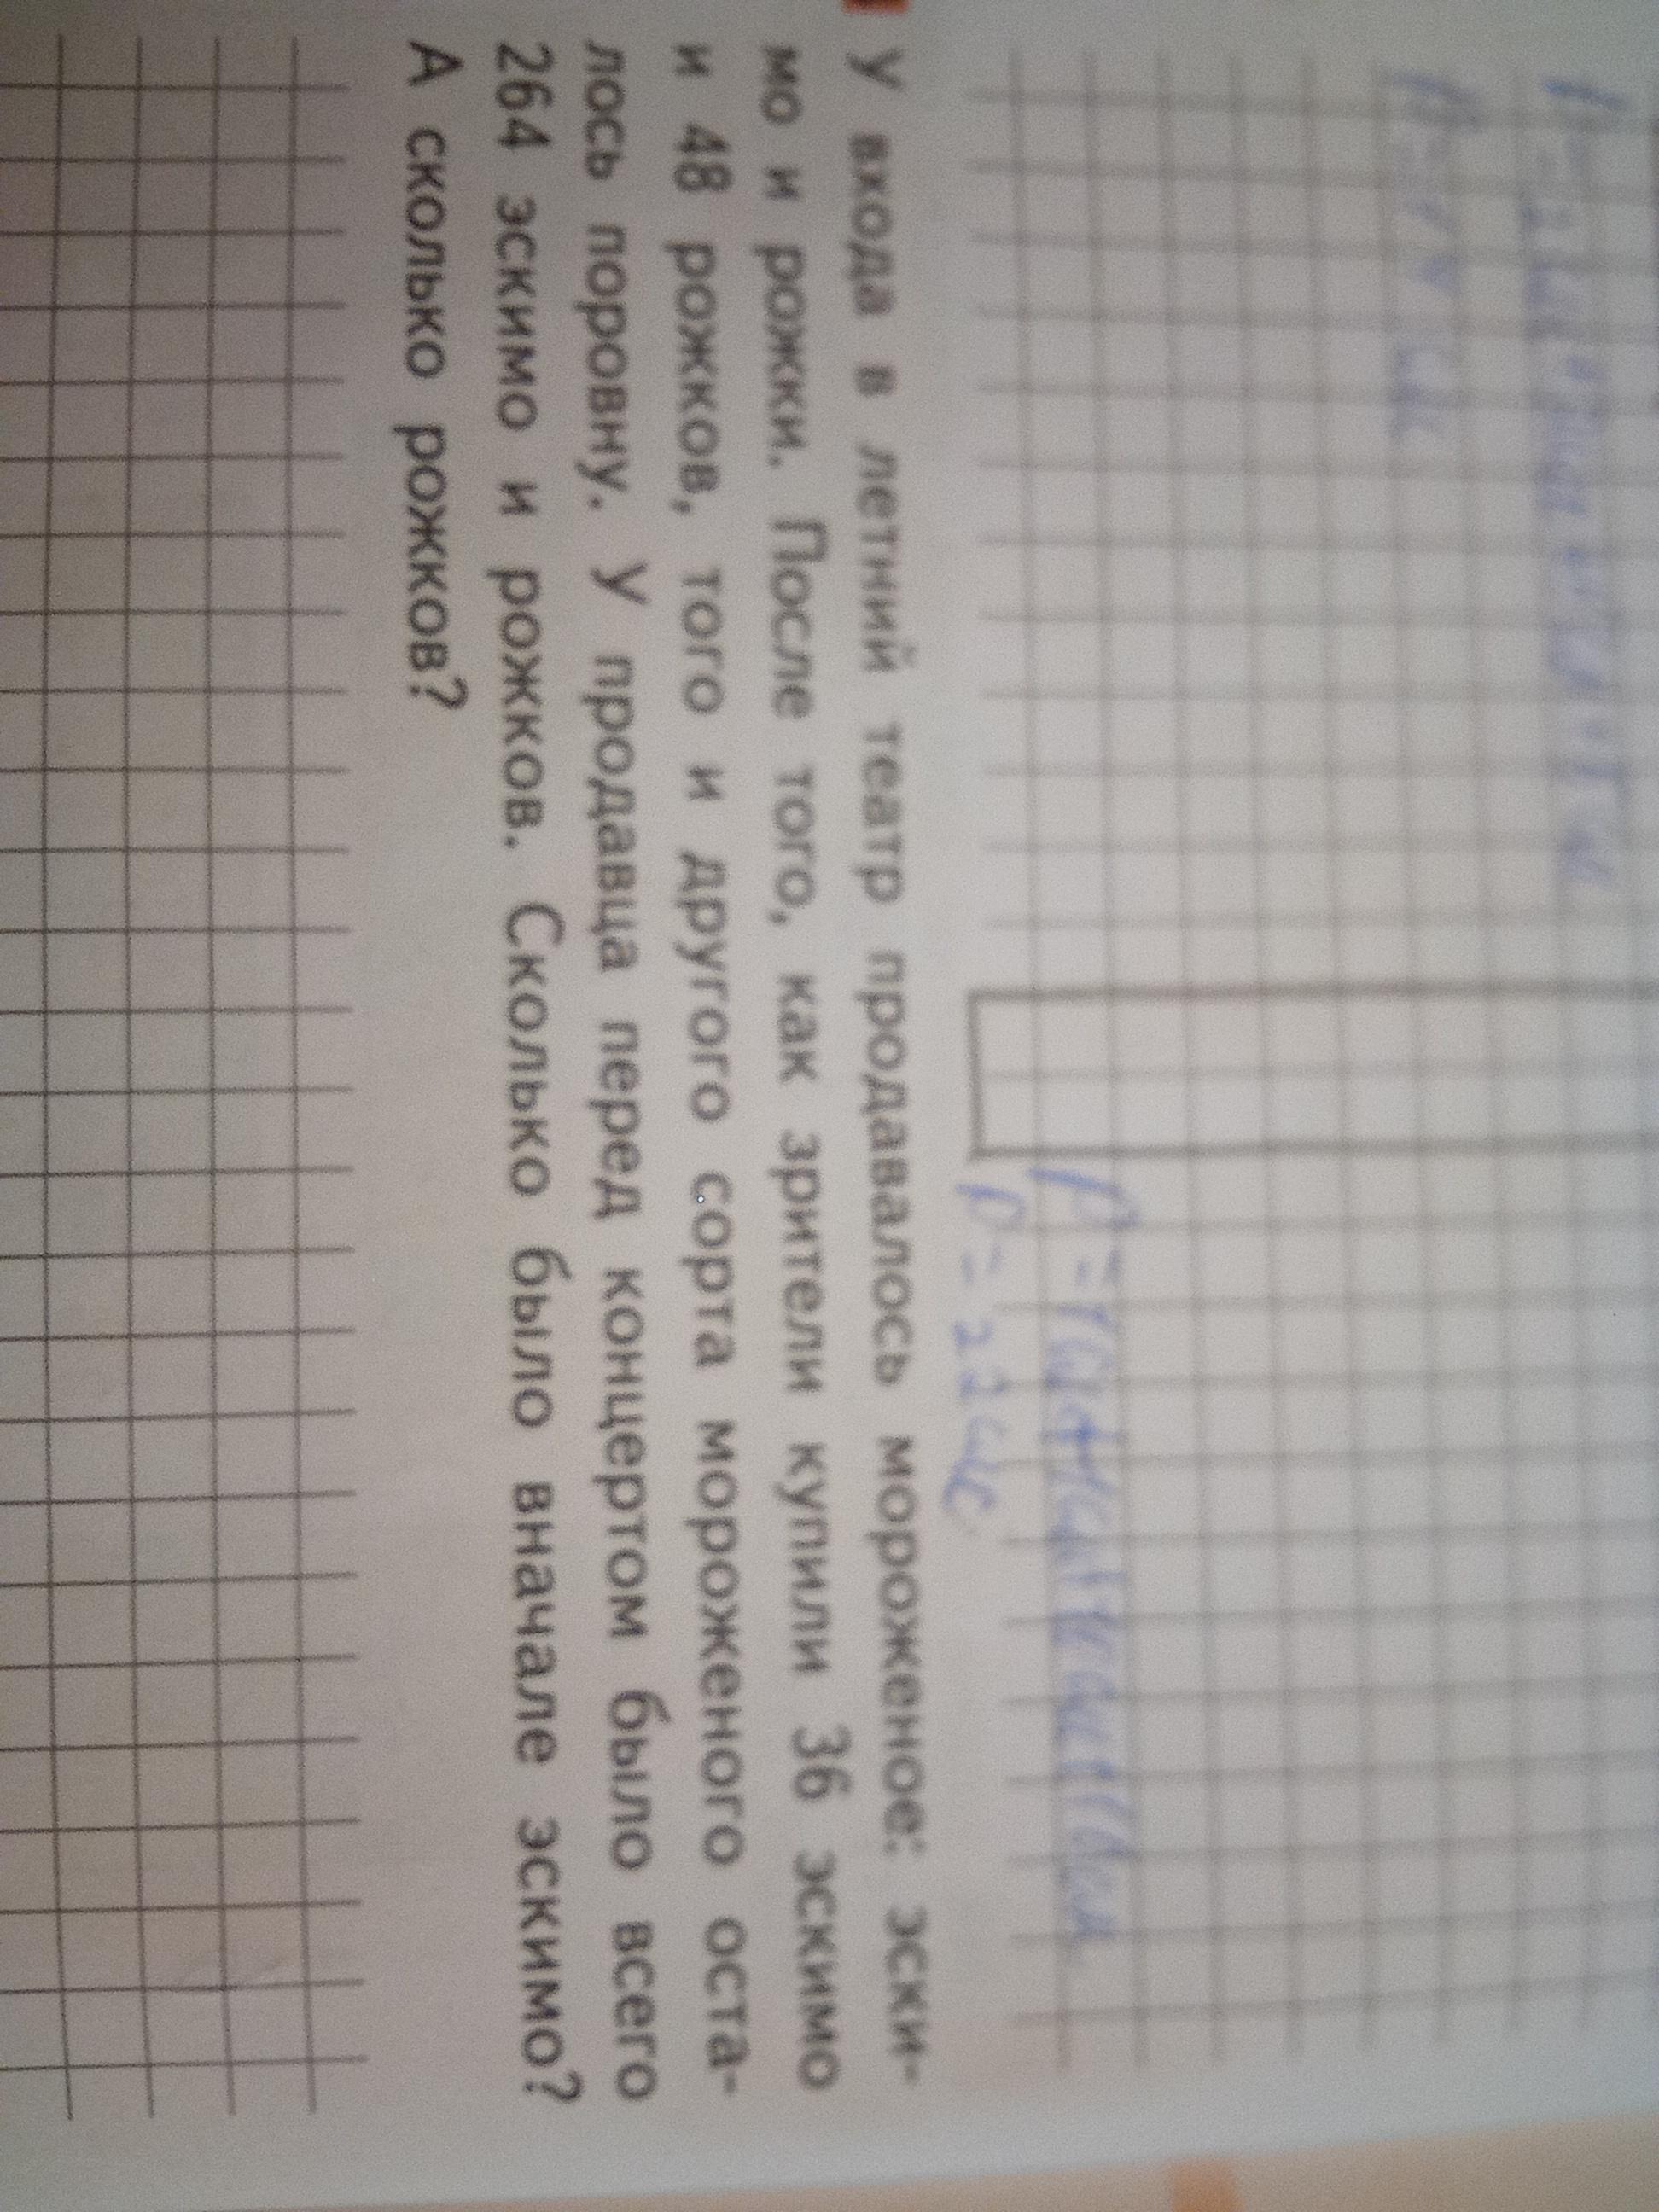 P = 22 см
У входа в летний театр продавалось мороженое: эски-
мо и рожки. После того, как зрители купили 36 эскимо
и 48 рожков, того и другого сорта мороженого оста-
лось поровну. У продавца перед концертом было всего
264 эскимо и рожков. Сколько было вначале эскимо?
А сколько рожков?